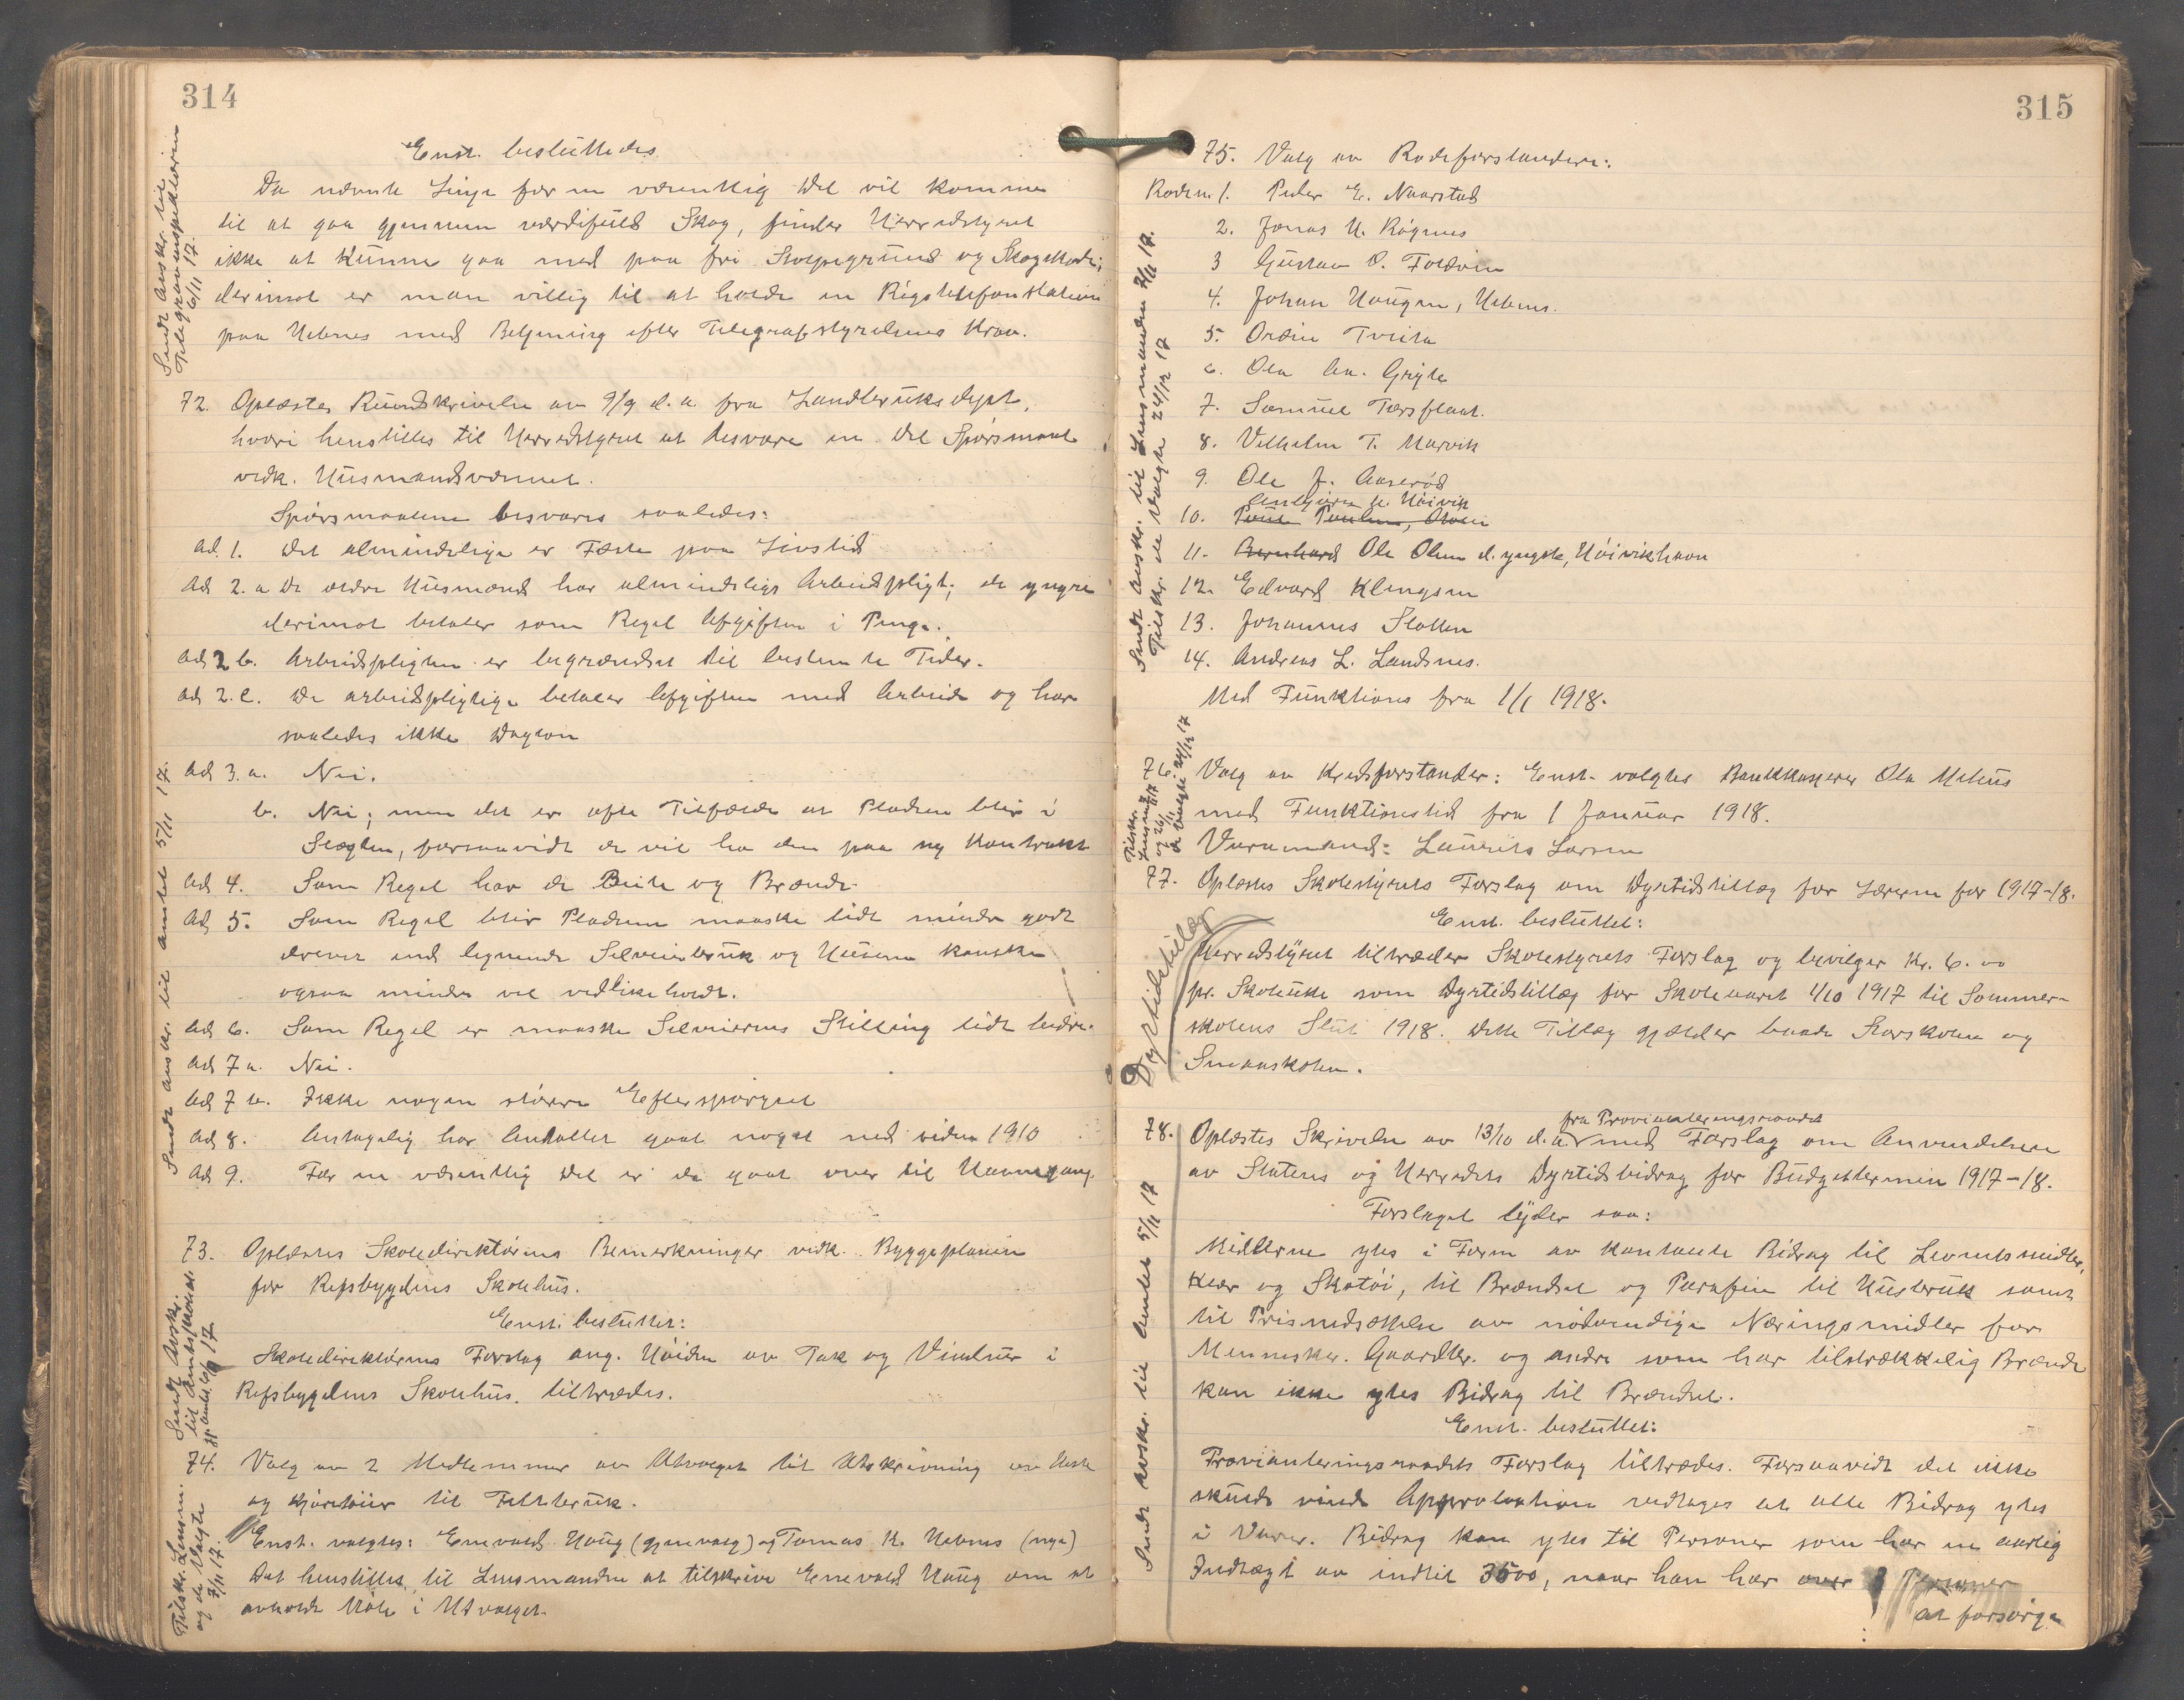 314
Enst. besluttedes
Da nævnte Linje for en væsentlig Del vil komme
til at gaa gjennem værdifuld Skog, finder Herredstyret
ikke at kunne gaa med paa fri Stolpegrund og Skogskade;
derimot er man villig til at holde en Rigstelefonstation
paa Nebnes med Betjening efter Telegrafstyrelsens Krav.
Sendt Avskr. til
Telegrafinspektøren
6/11 17
72. Oplæstes Rundskrivelse av 9/9 d.a. fra Landbruksdept.
hvori henstilles til Herredstyret at besvare en Del Spørsmaal
vedk. Husmandsvæsenet.
Spørsmaalene besvares saaledes:
Ad. 1. Det almindelige er Fæste paa Livstid
Ad 2.a De ældre Husmænd har almindelige Arbeidspligt; de yngre
derimot betaler som Regel Afgiften i Penge.
Ad 2 b. Arbeidspligten er begrændset til bestemte Tider.
Ad 2.c. De arbeidspligtige betaler Afgiften med Arbeide og har
saaledes ikke Dagløn
Ad 3.a. Nei.
b. Nei; men det er ofte Tilfælde at Pladsen blir i
Slægten, forsaavidt de vil ha den paa ny Kontrakt
Ad 4. Som Regel har de Beite og Brænde
Ad 5. Som Regel blir Pladsen maaske lidt mindre godt
drevet end lignende Selveierbruk og Husene kanske
ogsaa mindre vel vedlikeholdt.
Ad 6. Som Regel er maaske Selveiernes Stilling lidt bedre.
Ad 7 a. Nei.
Ad 7 b. Ikke nogen større Efterspørgsel
Ad 8. Antagelig har Antallet gaat noget ned siden 1910
Ad 9. For en væsentlig Del er de gaat over til
Sendt avskr. til amtet 5/11 17.
73. Oplæstes Skoledirektørens Bemerkninger vedk. Byggeplanen
for Refsbygdens Skolehus.
Enst. besluttet:
Skoledirektørens Forslag ang. Høiden av Tak og Vinduer i
Refsbygdens Skolehus. tiltrædes.
Sendt Avskr.
74. Valg av 2 Medlemmer av Utvalget til Utskrivning av Heste
og Kjøretøier til Feltbruk.
Enst. valgtes: Enevald Haug (gjenvalg) og Tomas K. Nebnes (nye)
Det henstilles til Lensmanden at tilskrive Enevald Haug om at
avholde Møte i Utvalget.
Tilskr. Lensm.
og de Valgte
7/11 17.
315
75. Valg av Rodeforstandere:
Roden 1. Peder E. Naarstad
2. Jonas N. Røgnes
3 Gustav O. Foldøen
4. Johan Haugen, Nebnes.
5. Ordin Tveita
6. Ola An. Gryte
7. Samuel Torsflaat.
8. Vilhelm T. Marvik
9. Ole J. Aaserød
10.
11. Bernhard Ole Olsen d. yngste, Høivikhavn
12. Edvard Klungsen
13. Johannes Slotten
14. Andreas L. Landsnes.
Med Funktions fra 1/1 1918.
Sendt Avskr. til Lensmanden
Tilskr. de Valgte 24/12 17
76. Valg av Kredsforstander: Enst. valgtes Bankkasserer Ola
med Funktionstid fra 1 Januar 1918.
Varamand: Laurits Larsen
77. Oplæstes Skolestyrets Forslag om Dyrtidstillæg for Lærerne for 1917-18.
Enst. besluttet:
Herredstyret tiltræder Skolestyrets Forslag og bevilger Kr. 6.00
pr. Skoleuke som Dyrtidstillæg for Skoleaaret 1/10 1917 til Sommer-
skolens Slut 1918. Dette Tillæg gjælder baade Storskolen og
Smaaskolen.
Dyrtidstillæg
78. Oplæstes Skrivelse av 13/10 d.a. fra Provianteringsraadet med Forslag om Anvendelsen
av Statens og Herredets Dyrtidsbidrag for Budgettermin 1917-18.
Forslaget lyder saa:
Midlerne ytes i Form av kontante Bidrag til Levnetsmidler,
Klær og Skotøi, til Brændsel og Parafin til Husbruk samt
til Prisnedsættelse av nødvendige Næringsmidler for
Mennesker. Gaardbr. og andre som har tilstrækkelig Brænde
kan ikke ytes Bidrag til Brændsel.
Enst. besluttet:
Provianteringsraadets Forslag tiltrædes. Forsaavidt det ikke
skulde vinde Approbation vedtages at alle Bidrag ytes
i Varer. Bidrag kan ytes til Personer som har en aarlig
Indtægt av indtil 3500, naar han har over Personer
at forsørge
Sendt Avskr. til Amtet 5/11 17